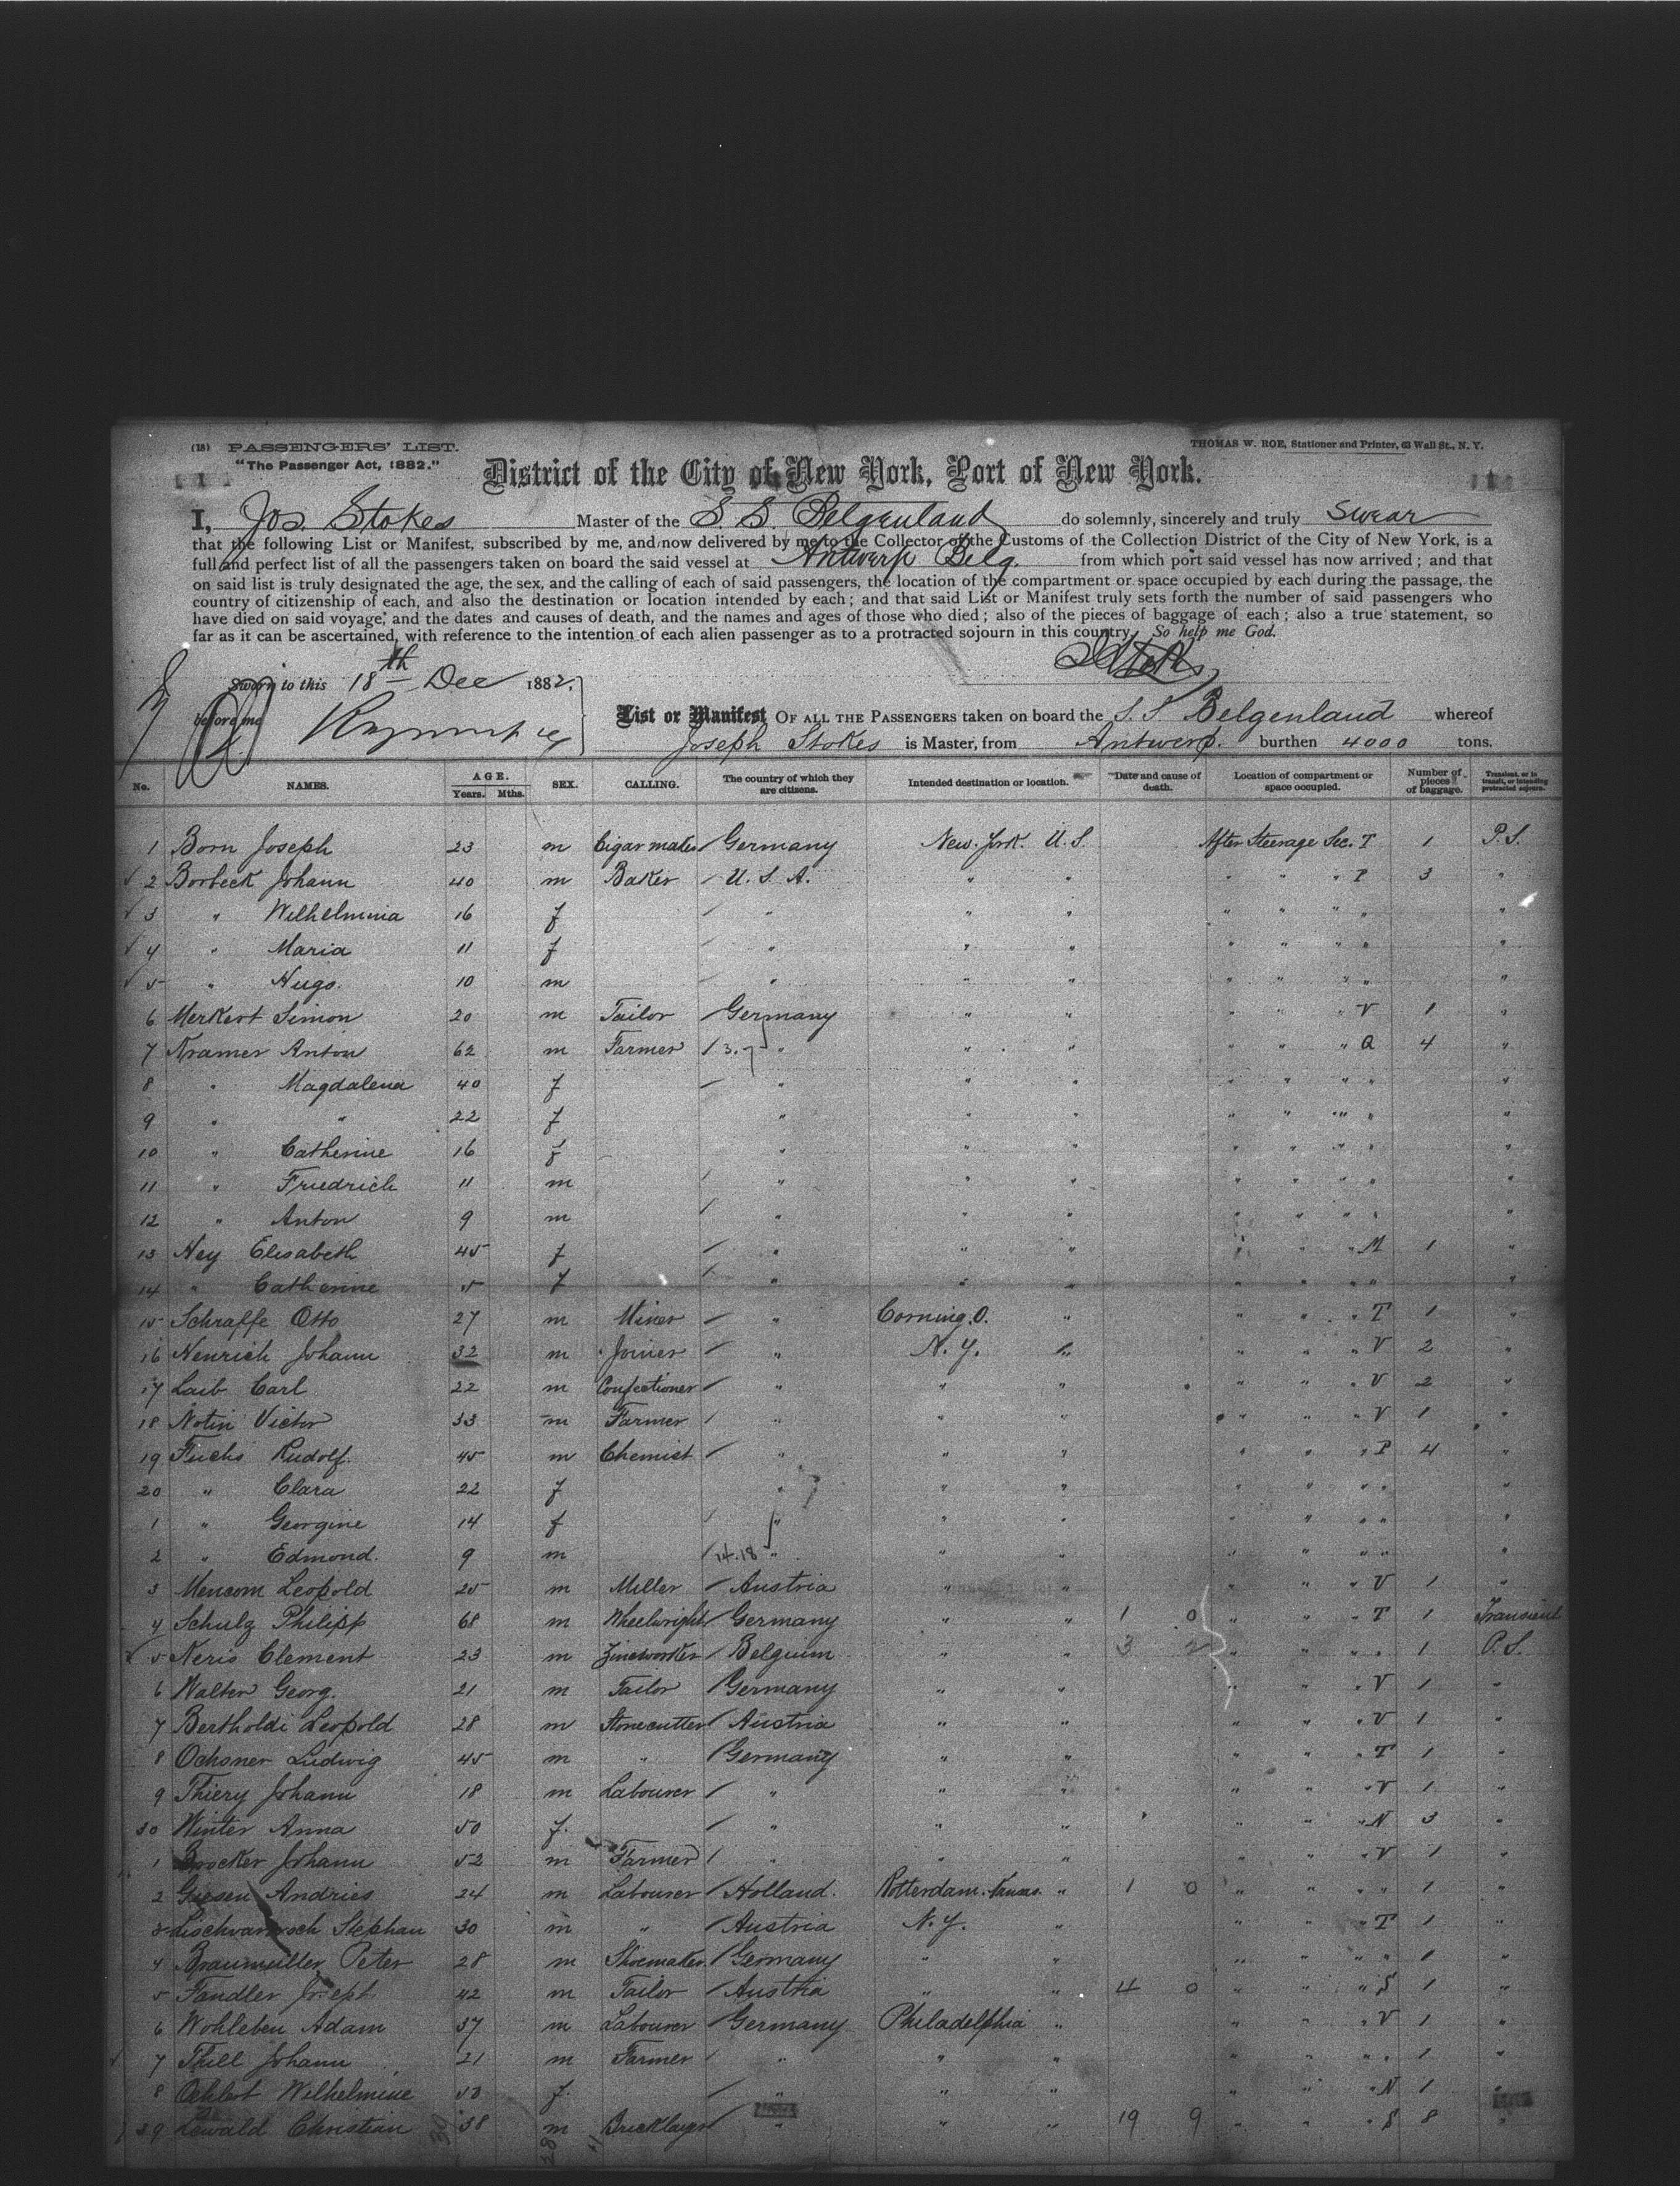 (18) PASSENGERS' LIST.
THOMAS W. ROE, Stationer and Printer, 63 Wall St., N. Y.
"The Passenger Act, 1882."
District of the City of New York, Port of New York.
I, Jos. Stokes Master of the S. S. Belgenland do solemnly, sincerely and truly swear
that the following List or Manifest, subscribed by me, and now delivered by me to the Collector of the Customs of the Collection District of the City of New York, is a
full and perfect list of all the passengers taken on board the said vessel at Antwerp Belg. from which port said vessel has now arrived; and that
on said list is truly designated the age, the sex, and the calling of each of said passengers, the location of the compartment or space occupied by each during the passage, the
country of citizenship of each, and also the destination or location intended by each; and that said List or Manifest truly sets forth the number of said passengers who
have died on said voyage, and the dates and causes of death, and the names and ages of those who died; also of the pieces of baggage of each; also a true statement, so
far as it can be ascertained, with reference to the intention of each alien passenger as to a protracted sojourn in this country. So help me God.
JStokes
Sworn to this 18th Dec 1882.
before me
List or Manifest OF ALL THE PASSENGERS taken on board the S. S. Belgenland whereof
Joseph Stokes is Master, from Antwerp. burthen 4000 tons.
No. NAMES. AGE. Years. Mths. SEX. CALLING. The country of which they are citizens. Intended destination or location. Date and cause of death. Location of compartment or space occupied. Number of pieces of baggage. Transient, or in transit, or intending protracted sojourn.
1 Born Joseph 23 m Cigar maker Germany New York U.S. After Steerage Sec. T 1 P.S.
2 Borbeck Johann 40 m Baker U.S.A. " " " " " P 3 "
3 " Wilhelmina 16 f " " " " " " " "
4 " Maria 11 f " " " " " " " "
5 " Hugo. 10 m " " " " " " " "
6 Merkert Simon 20 m Tailor Germany " " V 1 "
7 Kramer Anton 62 m Farmer 3.7 " " " " " " Q 4 "
8 " Magdalena 40 f " " " " " " " "
9 " " 22 f " " " " " " " "
10 " Catherine 16 f " " " " " " " "
11 " Friedrich 11 m " " " " " " " "
12 " Anton 9 m " " " " " " " "
13 Ney Elisabeth 45 f " " " " " " M 1 "
14 " Catherine 5 f " " " " " " " "
15 Schraffe Otto 27 m Miner " Corning. O. " " " " T 1 "
16 Henrich Johann 32 m Joiner " N. Y. " " " " V 2 "
17 Laib Carl 22 m Confectioner " " " " " " V 2 "
18 Notin Victor 33 m Farmer " " " " " " V 1 "
19 Fuchs Rudolf. 45 m Chemist " " " " " " P 4 "
20 " Clara 22 f " " " " " " " "
1 " Georgine 14 f " " " " " " " "
2 " Edmond. 9 m 14.18 " " " " " " " "
3 Leopold 25 m Miller Austria " " " " " V 1 "
4 Schulz Philipp 68 m Wheelwright Germany " " 1 0 " " " T 1 Transient
5 Neris Clement 23 m Zincworker Belgium " " 3 2 " " " " 1 P.S.
6 Walter Georg. 21 m Tailor Germany " " " " " V 1 "
7 Bertholdi Leopold 28 m Stonecutter Austria " " " " " V 1 "
8 Ochsner Ludwig 45 m " Germany " " " " " T 1 "
9 Thiery Johann 18 m Labourer " " " " " " V 1 "
30 Winter Anna 50 f. " " " " " " N 3 "
1 Brocker Johann 52 m Farmer " " " " " " V 1 "
2 Andries 24 m Labourer Holland. Rotterdam. Kansas. " 1 0 " " " " 1 "
3 Stephan 30 m " Austria N. Y. " " " " T 1 "
4 Braumuller Peter 28 m Shoemaker Germany " " " " " " 1 "
5 Fandler Joseph 42 m Tailor Austria " " 4 0 " " " S 1 "
6 Wohleben Adam 37 m Labourer Germany Philadelphia " " " " V 1 "
7 Thill Johann 21 m Farmer " " " " " " " 1 "
8 Wilhelmine 53 f. " " " " " " N 1 "
39 Lewald Christian 38 m Bricklayer " " " 19 9 " " " S 8 "